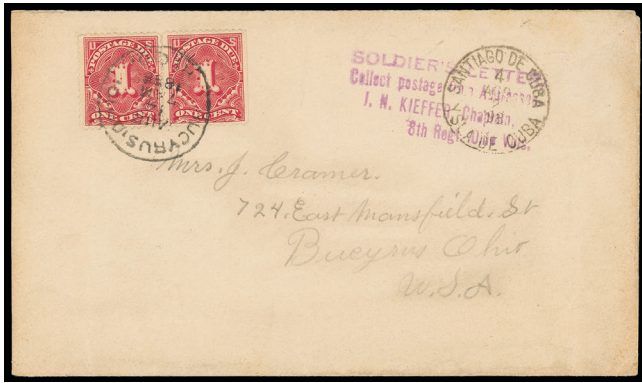 U S
POSTAGE DUE
1
ONE CENT
U S
POSTAGE DUE
1
ONE CENT
BUCYRUS
SOLDIER'S LETTER
Collect postage Addressee
I. N. KIEFFER, Chaplain,
8th Regt. Ohio
SANTIAGO DE CUBA
4
98
ISLA DE CUBA
Mrs. J. Cramer.
724. East Mansfield. St
Bucyrus Ohio
U.S.A.